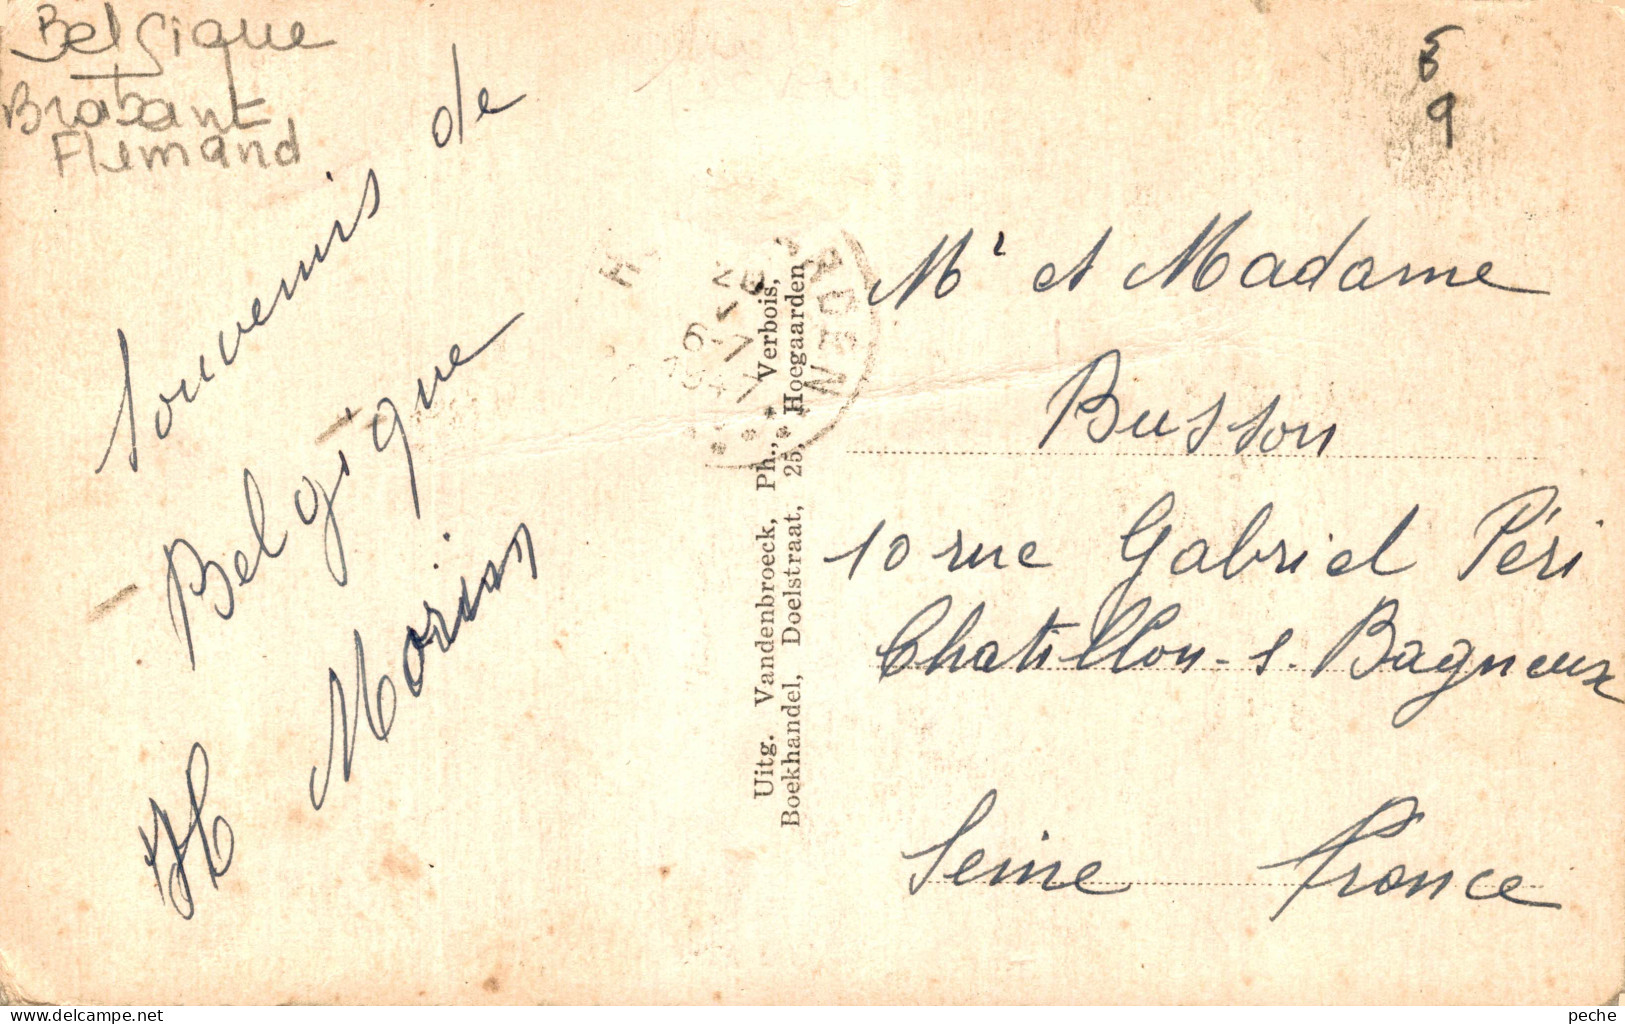 Belgique
Brabant
Flemand
Souvenirs de
Belgique
H
9
Uitg. Vandenbroeck, Ph., Verbois,
Boekhandel, Doelstraat, 25, Hoegaarden
Mr et Madame
Busson
10 rue Gabriel Péri
Chatillon-s. Bagneux
Seine France
peche